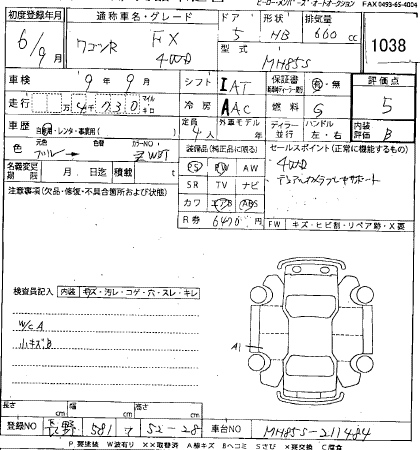 ヒーロー・メンバーズ・オートオークション FAX 0493-65-4004
初度登録年月 通称車名・グレード ドア 形状 排気量
6/9月 ワゴンR FX 4WD 5 HB 660 cc
型式 MH85S 1038
車検 9年9月 シフト IAT 保証書 有・無 評価点
走行 万4730 マイル キロ 冷房 AAC 燃料 G 5
車歴 自家用・レンタ・事業用( ) 定員 4人 外車モデル 年 ディーラー 並行 ハンドル 左・右 内装評価 B
色 元色 ブルー 色替 カラーNO ZWBT
装備品(純正品に限る) セールスポイント(正常に機能するもの)
PS PW AW 4WD
名義変更期限 月 日迄 積載 kg
SR TV ナビ デュアルカメラブレーキサポート
注意事項(欠品・修復・不具合箇所および状態)
カワ エアB ABS
R券 6470円 FW キズ・ヒビ割・リペア跡・X要
検査員記入 内装 キズ・汚レ・コゲ・穴・スレ・キレ
W/C A
小キズB
A1
長さ cm 幅 cm 高さ cm
登録NO 長野 581 ワ 52-28 車台NO MH85S-211484
P要塗装 W波有り XX取替済 A線キズ Bヘコミ Sさび X要交換 C腐食